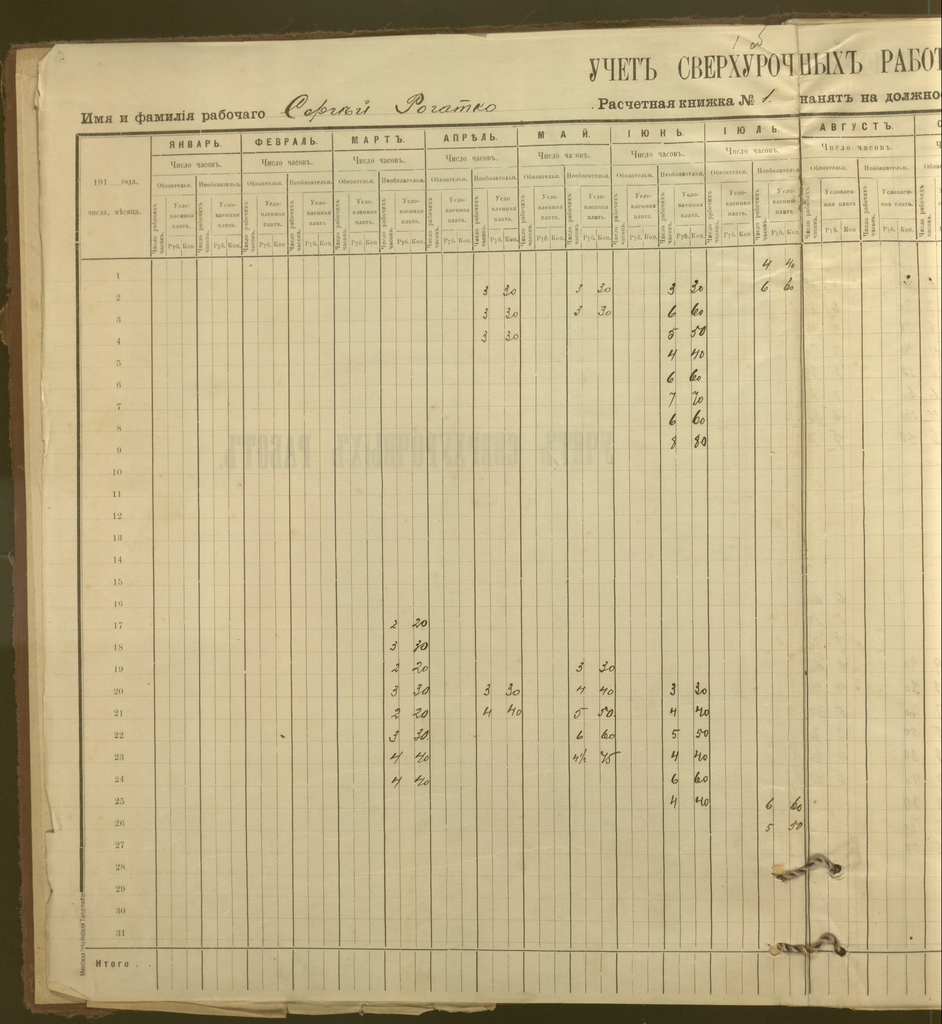 УЧЕТЪ СВЕРХУРОЧНЫХЪ РАБОТ
Имя и фамилія рабочаго Сергѣй Рогатко Расчетная книжка № 1. нанятъ на должно
ЯНВАРЬ. ФЕВРАЛЬ. МАРТЪ. АПРѢЛЬ. МАЙ. ІЮНЬ. ІЮЛЬ. АВГУСТЪ.
Число часовъ. Число часовъ. Число часовъ. Число часовъ. Число часовъ. Число часовъ. Число часовъ. Число часовъ.
191 года. Обязательн. Необязательн. Обязательн. Необязательн. Обязательн. Необязательн. Обязательн. Необязательн. Обязательн. Необязательн. Обязательн. Необязательн. Обязательн. Необязательн. Обязательн. Необязательн.
числа, мѣсяца.
Число рабочихъ часовъ. Условленная плата. Руб. Коп.
1 4 40
2 3 30 3 30 3 30 6 60
3 3 30 3 30 6 60
4 3 30 5 50
5 4 40
6 6 60
7 7 70
8 6 60
9 8 80
10
11
12
13
14
15
16
17 2 20
18 3 30
19 2 20 3 30
20 3 30 3 30 4 40 3 30
21 2 20 4 40 5 50 4 40
22 3 30 6 60 5 50
23 4 40 4½ 45 4 40
24 4 40 6 60
25 4 40 6 60
26 5 50
27
28
29
30
31
Итого